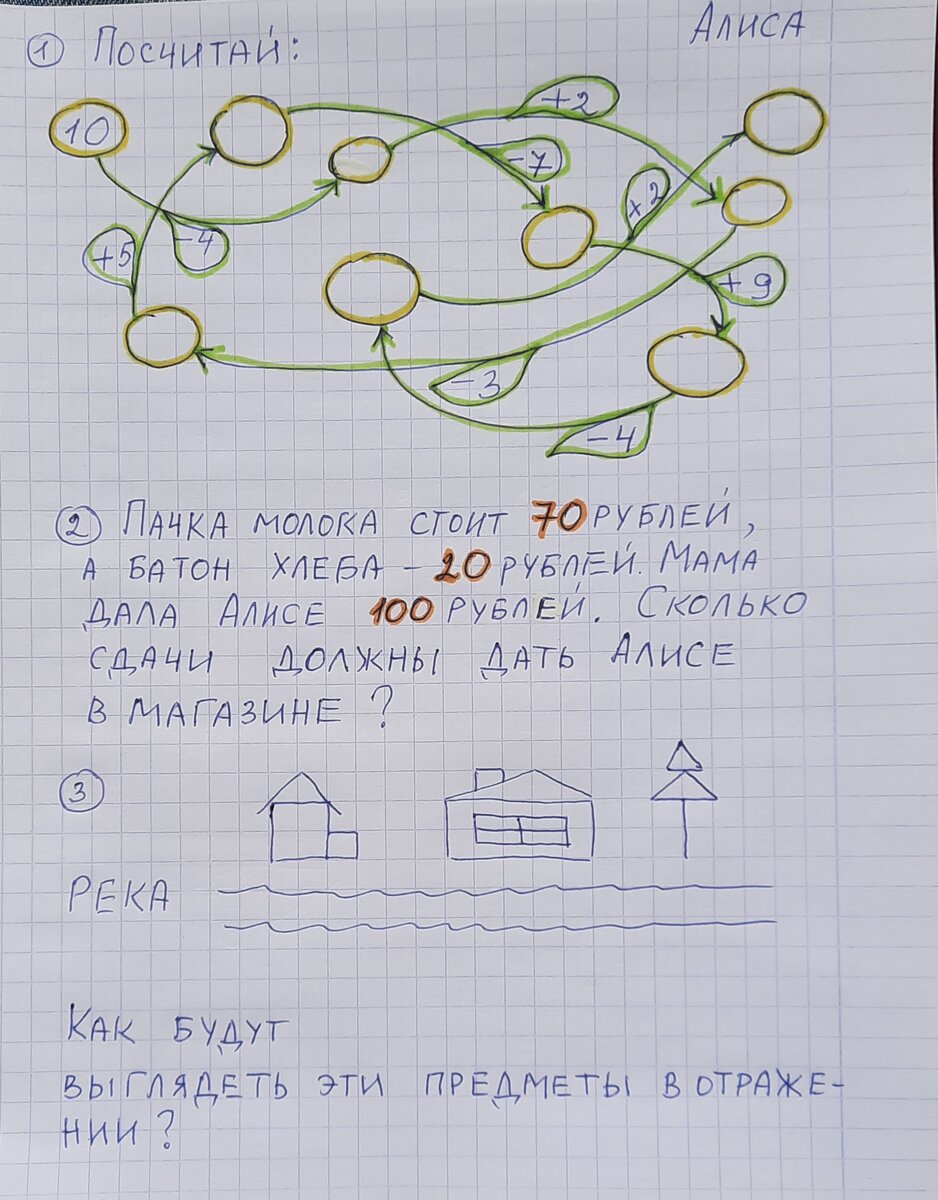 Алиса
① Посчитай:
10
+2
-7
+2
-4
+5
+9
-3
-4
② Пачка молока стоит 70 рублей,
а батон хлеба - 20 рублей. Мама
дала Алисе 100 рублей. Сколько
сдачи должны дать Алисе
в магазине?
③
Река
Как будут
выглядеть эти предметы в отраже-
нии?